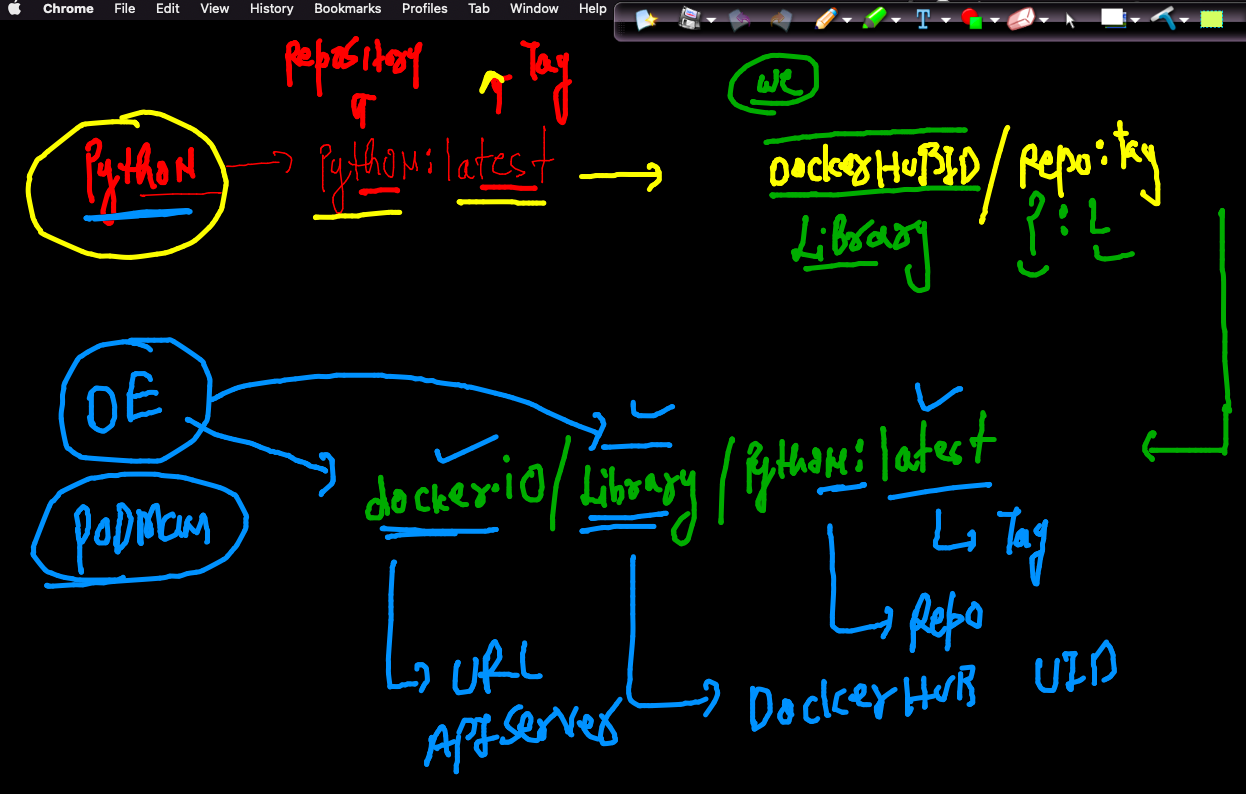 Chrome File Edit View History Bookmarks Profiles Tab Window Help
Repository Tag
we
Python Python:latest DockerHuBID / Repo:Tag
LiBrary ? : L
DE
docker.io / Library / Python:latest
PODMan
Tag
Repo
URL
API Server
DockerHuB UID